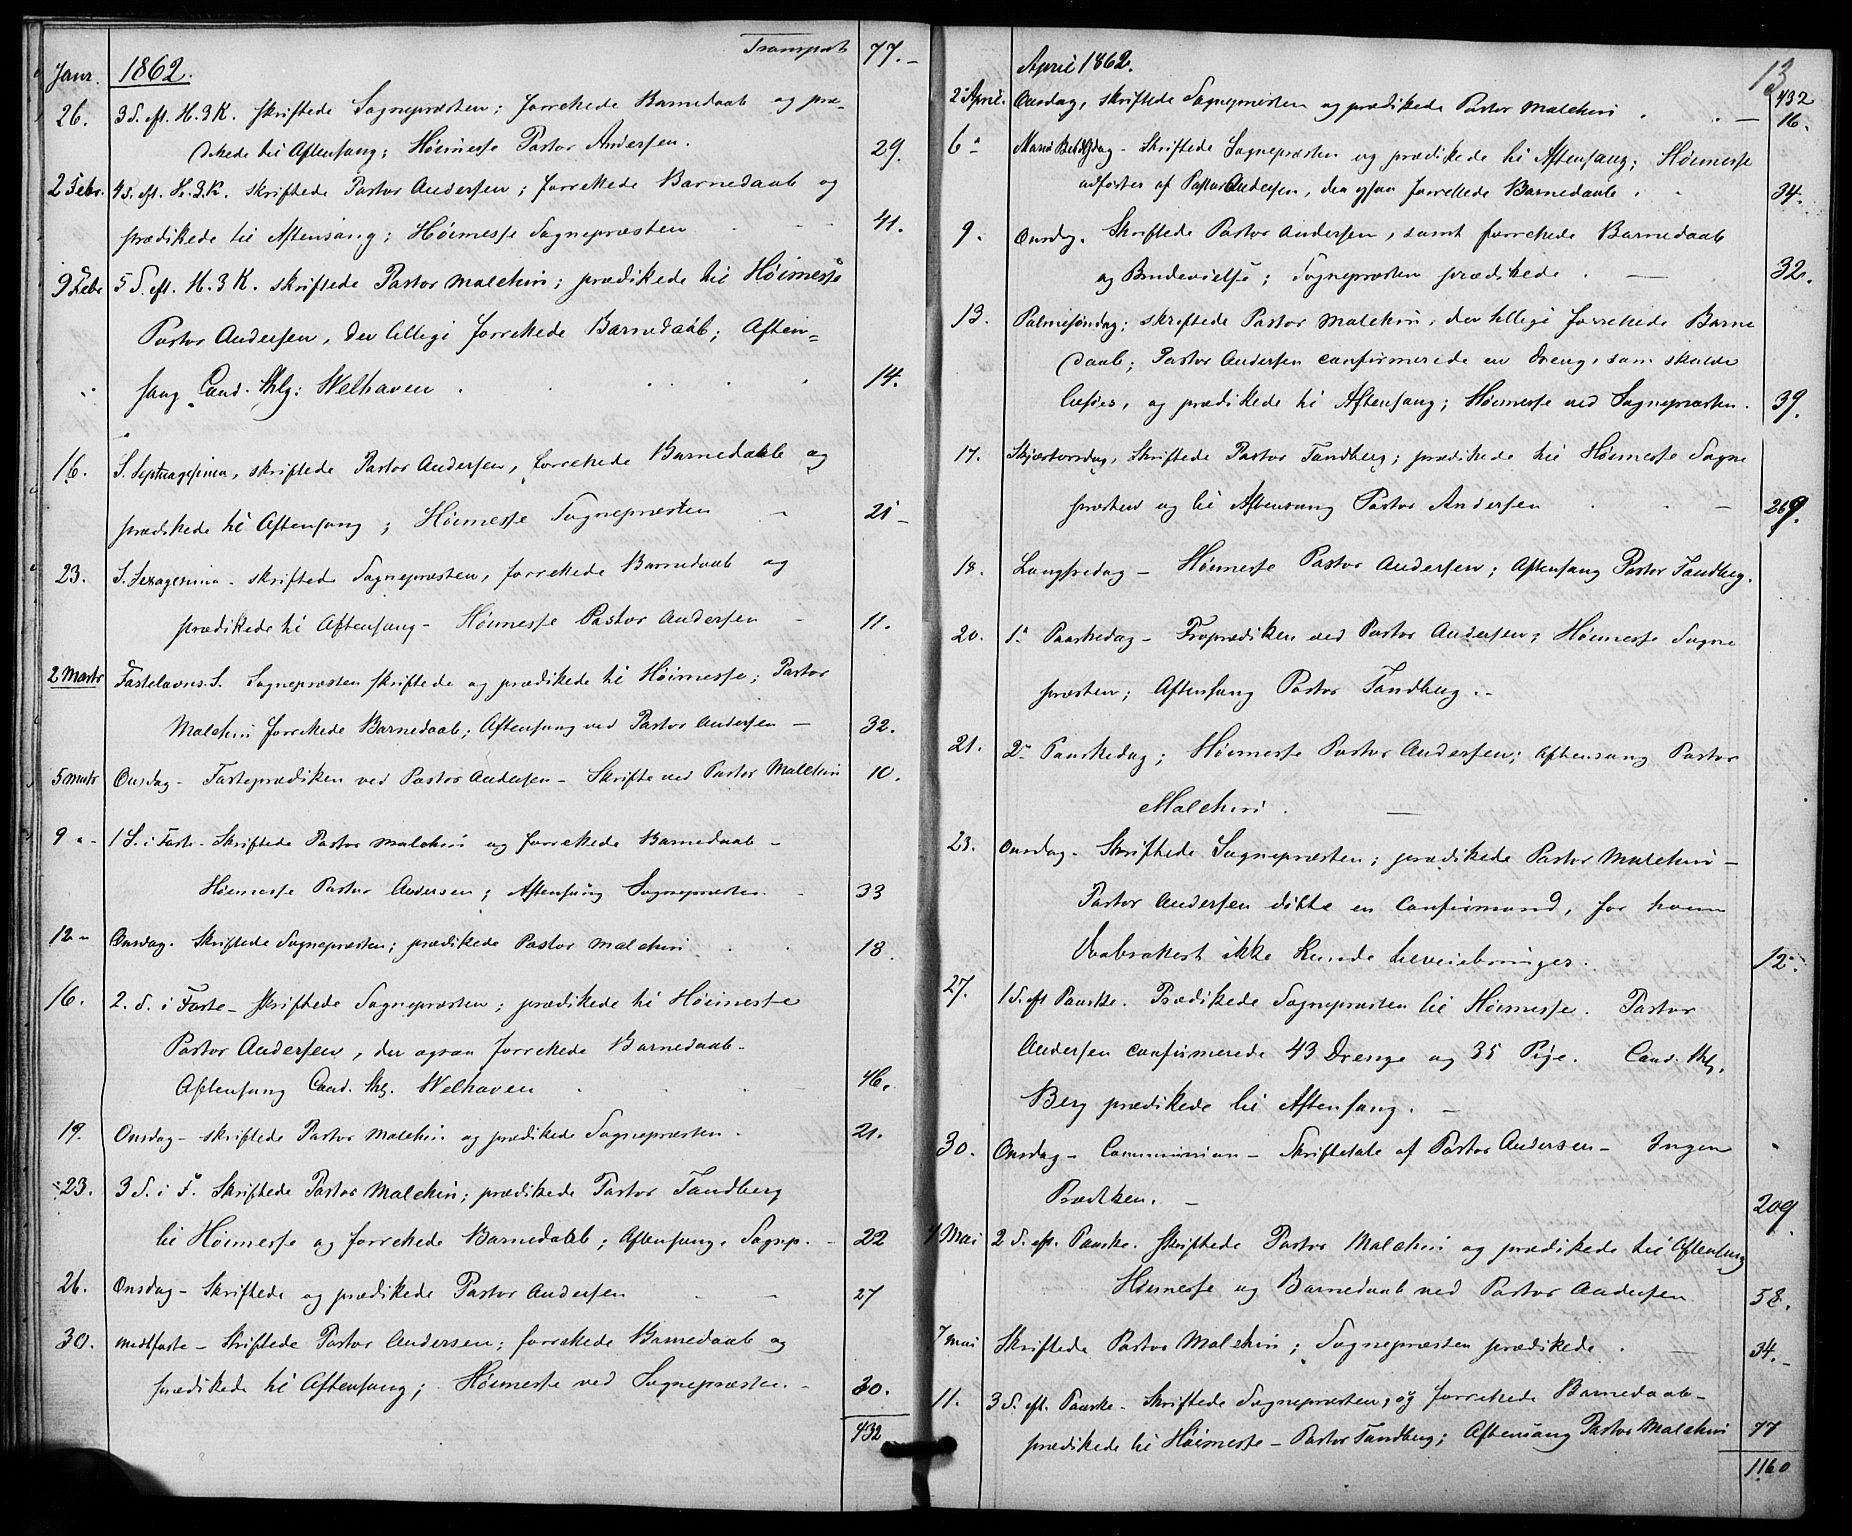 Transport 77.-
Janr. 1862.
26. 3 S. eft. H. 3 K. skriftede Sognepræsten; forrettede Barnedaab og præ-
dikede til Aftensang; Høimesse Pastor Andersen. 29.
2 Febr. 4 S. eft. H. 3. K. skriftede Pastor Andersen; forrettede Barnedaab og
prædikede til Aftensang; Høimesse Sognepræsten 41.
9 Febr 5 S. eft. H. 3 K. skriftede Pastor Malthin; prædikede til Høimesse
Pastor Andersen, der tillige forrettede Barnedaab; Aften-
sang Cand. thlg: Welhaven. 14.
16. S. Septuagesima, skriftede Pastor Andersen, forrettede Barnedaab og
prædikede til Aftensang; Høimesse Sognepræsten - 21-
23. S. Sexagesima - skriftede Sognepræsten, forrettede Barnedaab og
prædikede til Aftensang - Høimesse Pastor Andersen - 11.
2 Marts Fastelavns S. Sognepræsten skriftede og prædikede til Høimesse; Pastor
Malthin forrettede Barnedaab; Aftensang ved Pastor Andersen - 32.
5 Marts Onsdag - Fasteprædiken ved Pastor Andersen - Skrifte ved Pastor Malthin 10.
9 "- 1 S. i Faste - Skriftede Pastor Malthin og forrettede Barnedaab -
Høimesse Pastor Andersen; Aftensang Sognepræsten - 33
12 - Onsdag. Skriftede Sognepræsten; prædikede Pastor Malthin . . 18.
16. 2. S. i Faste - skriftede Sognepræsten; prædikede til Høimesse
Pastor Andersen, der ogsaa forrettede Barnedaab -
Aftensang Cand. thlg. Welhaven . . . 46.
19. Onsdag - skriftede Pastor Malthin og prædikede Sognepræsten. 21.
23. 3 S. i F. Skriftede Pastor Malthin; prædikede Pastor Tandberg
til Høimesse og forrettede Barnedaab; Aftensang, Sognep. - 22
26. Onsdag - Skriftede og prædikede Pastor Andersen - - 27
30. Midtfaste - Skriftede Pastor Andersen; forrettede Barnedaab og
prædikede til Aftensang; Høimesse ved Sognepræsten. - 30.
432
13
April 1862.
432
2 April. Onsdag, skriftede Sognepræsten og prædikede Pastor Malthin . . - 16.
6 " Mariæ Bebdag - Skriftede Sognepræsten og prædikede til Aftensang; Høimesse
udførtes af Pastor Andersen, der ogsaa forrettede Barnedaab . . 34.
9. Onsdg. Skriftede Pastor Andersen, samt forrettede Barnedaab
og Brudevielse; Sognepræsten prædikede . - 32.
13. Palmesøndag; skriftede Pastor Malthin, der tillige forrettede Barne
daab; Pastor Andersen confirmerede en Dreng, som skulde
, og prædikede til Aftensang; Høimesse ved Sognepræsten. 39.
17. Skjærtorsdag, Skriftede Pastor Tandberg; prædikede til Høimesse Sogne
præsten og til Aftensang Pastor Andersen . . - 269.
18. Langfredag - Høimesse Pastor Andersen; Aftensang Pastor Tandberg.
20. 1. Paaskedag - Froprædiken ved Pastor Andersen; Høimesse Sogne
præsten; Aftensang Pastor Tandberg . -
21. 2. Paaskedag; Høimesse Pastor Andersen; Aftensang Pastor
Malthin . -
23. Onsdag - Skriftede Sognepræsten; prædikede Pastor Malthin -
Pastor Andersen døbte en Confirmand, for hvem
Daabsattest ikke kunde tilveiebringes. 12.
27. 1 S. eft Paaske. Prædikede Sognepræsten til Høimesse. Pastor
Andersen confirmerede 43 Drenge og 35 Pige. Cand. thlg.
Berg prædikede til Aftensang. -
30. Onsdag - Communion - Skriftetale af Pastor Andersen - Ingen
Prædiken. - 209.
4 Mai 2 S. eft. Paaske. Skriftede Pastor Malthin og prædikede til Aftensang
Høimesse og Barnedaab ved Pastor Andersen 58.
7 Mai Skriftede Pastor Malthin; Sognepræsten prædikede . - 34.-
11. 3 S. eft. Paaske - Skriftede Sognepræsten, og forrettede Barnedaab -
prædikede til Høimesse - Pastor Tandberg; Aftensang Pastor Malthin 77
1160